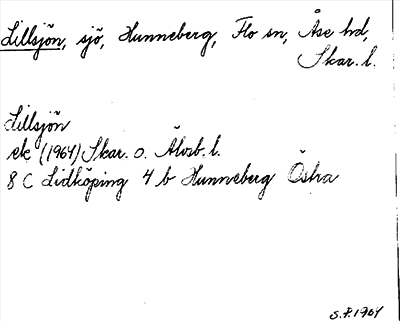 Lillsjön, sjö, Hunneberg, Flo sn, Åse hd,
Skar. l.
Lillsjön
ek (1964) Skar. o. Älvsb. l.
8 C Lidköping 4 b Hunneberg Östra
S.F. 1964